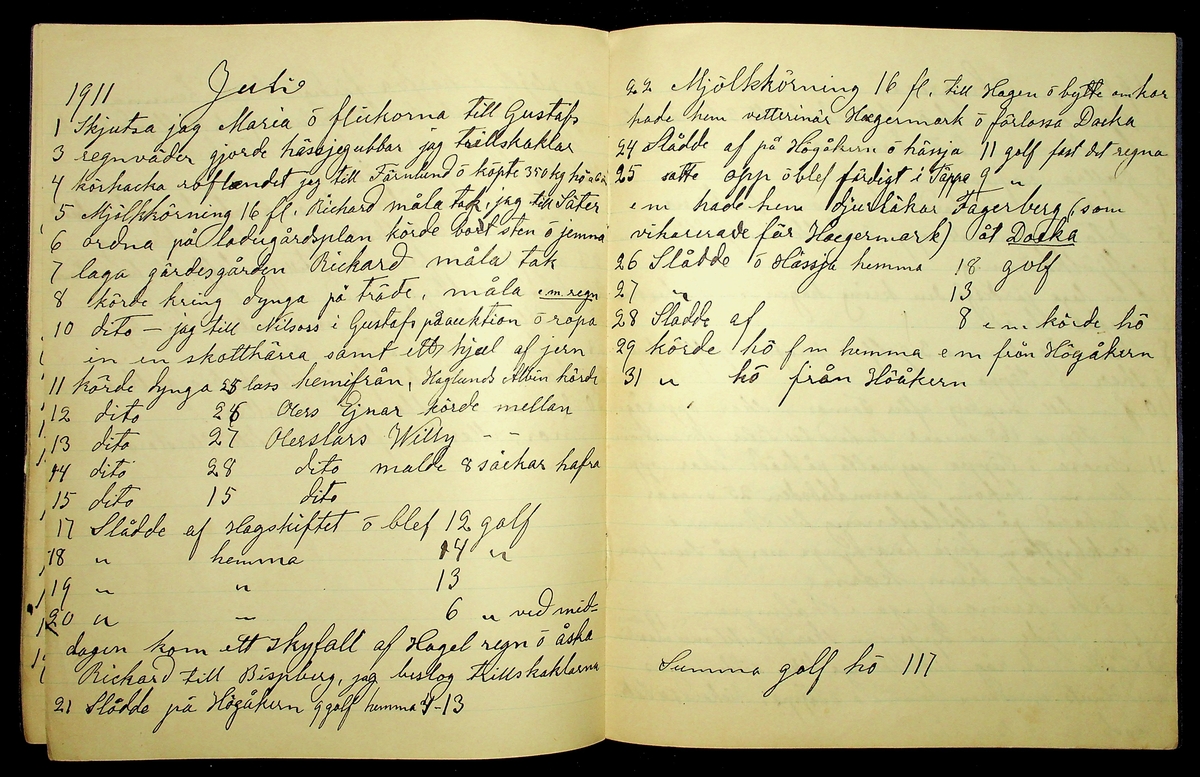 1911 Juli
1 Skjutsa jag Maria ö flickorna till Gustafs
3 regnväder gjorde hässjegubbar jag trillskaklar
4 körhacka rofländet jag till Färnlund ö köpte 350 kg hö
5 Mjölkkörning 16 fl. Richard måla tak, jag till Säter
6 ordna på ladugårdsplan körde bort sten ö jemna
7 laga gärdesgården Richard måla tak
8 körde kring dynga på träde, måla e.m. regn
10 dito – jag till Nilsoss i Gustafs på auktion ö ropa
in en skottkärra samt ett hjul af jern
11 körde dynga 25 lass hemifrån, Haglunds Albin körde
12 dito 28 Olers Ejnar körde mellan
13 dito 27 Olerslars Willy - -
14 dito 28 dito malde 8 säckar hafra
15 dito 15 dito
17 Slådde af Hagskiftet ö blef 12 golf
18 " hemma 14 "
19 " " 13
20 " " 6 " ved mid-
dagen kom ett skyfall af Hagel regn ö åska
Richard till Bispberg, jag beslog trillskaklarna
21 Slådde på Högåkern 9 golf hemma 4-13
22 Mjölkkörning 16 fl. till Hagen ö bytte om kor
hade hem vetterinär Hægermark ö förlossa Docka
24 Slådde af på Högåkern ö hässja 11 golf fast det regna
25 satte opp ö blef färdigt i Täppa 9 "
e m hade hem djurläkar Fagerberg (som
vikarierade för Hægermark) åt Docka
26 Slådde ö Hässja hemma 18 golf
27 " 13
28 Slådde af 8 e m körde hö
29 körde hö f m hemma e m från Högåkern
31 " hö från Höåkern
Summa golf hö 117